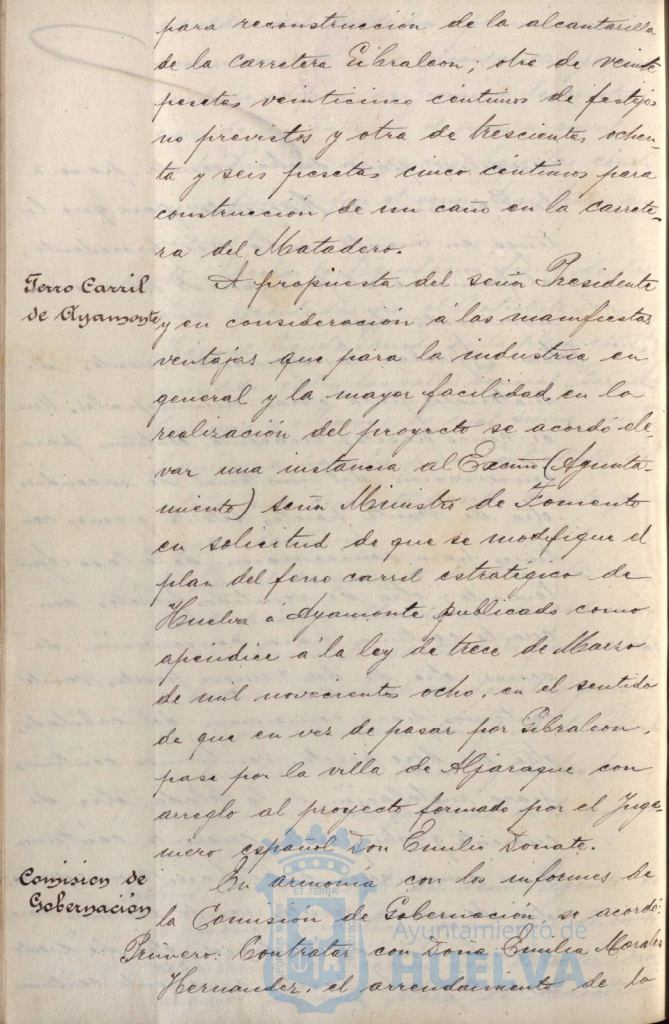 para reconstrucción de la alcantarilla
de la carretera Gibraleon; otra de veinte
pesetas veinticinco centimos de festejos
no previstos y otra de trescientas ochen-
ta y seis pesetas cinco centimos para
construcción de un caño en la carrete-
ra del Matadero.
Ferro Carril
de Ayamonte
A propuesta del señor Presidente
y en consideración á las manifiestas
ventajas que para la industria en
general y la mayor facilidad en la
realización del proyecto se acordó ele-
var una instancia al Excmo (Ayunta-
miento) señor Ministro de Fomento
en solicitud de que se modifique el
plan del ferro carril estratégico de
Huelva á Ayamonte publicado como
apéndice á la ley de trece de Marzo
de mil novecientos ocho, en el sentido
de que en vez de pasar por Gibraleon,
pase por la villa de Aljaraque con
arreglo al proyecto formado por el Inge-
niero español Don Emilio Donate.
Comision de
Gobernación
En armonía con los informes de
la Comisión de Gobernación, se acordó:
Primero: Contratar con Doña Emilia Morales
Hernandez, el arrendamiento de la
Ayuntamiento de
HUELVA